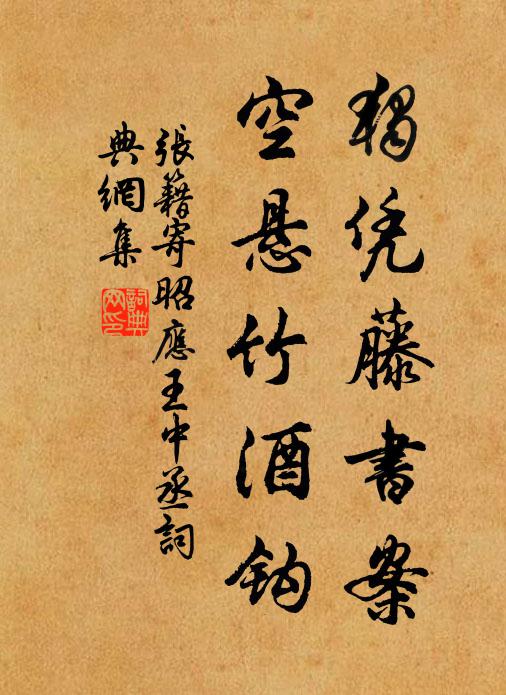 独凭藤書案
空悬竹酒钩
張籍寄昭應王中丞詞
典網集
詞典網印